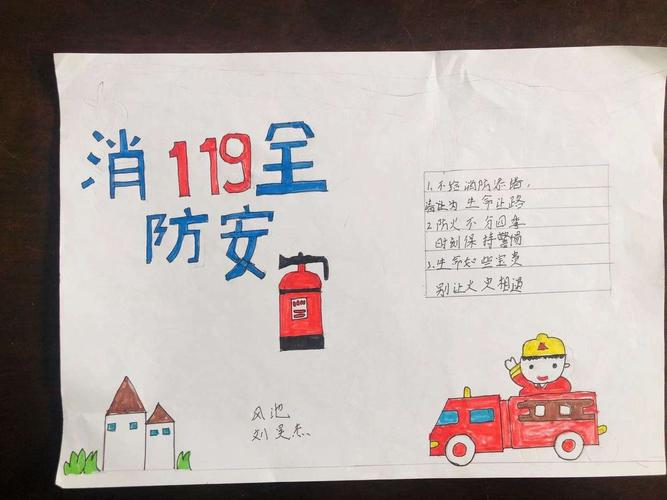 消119全
防安
1.不给消防添堵,
让为生命让路
2防火不分四季
时刻保持警惕
3.生命如些宝贵
别让火相遇
风池
刘